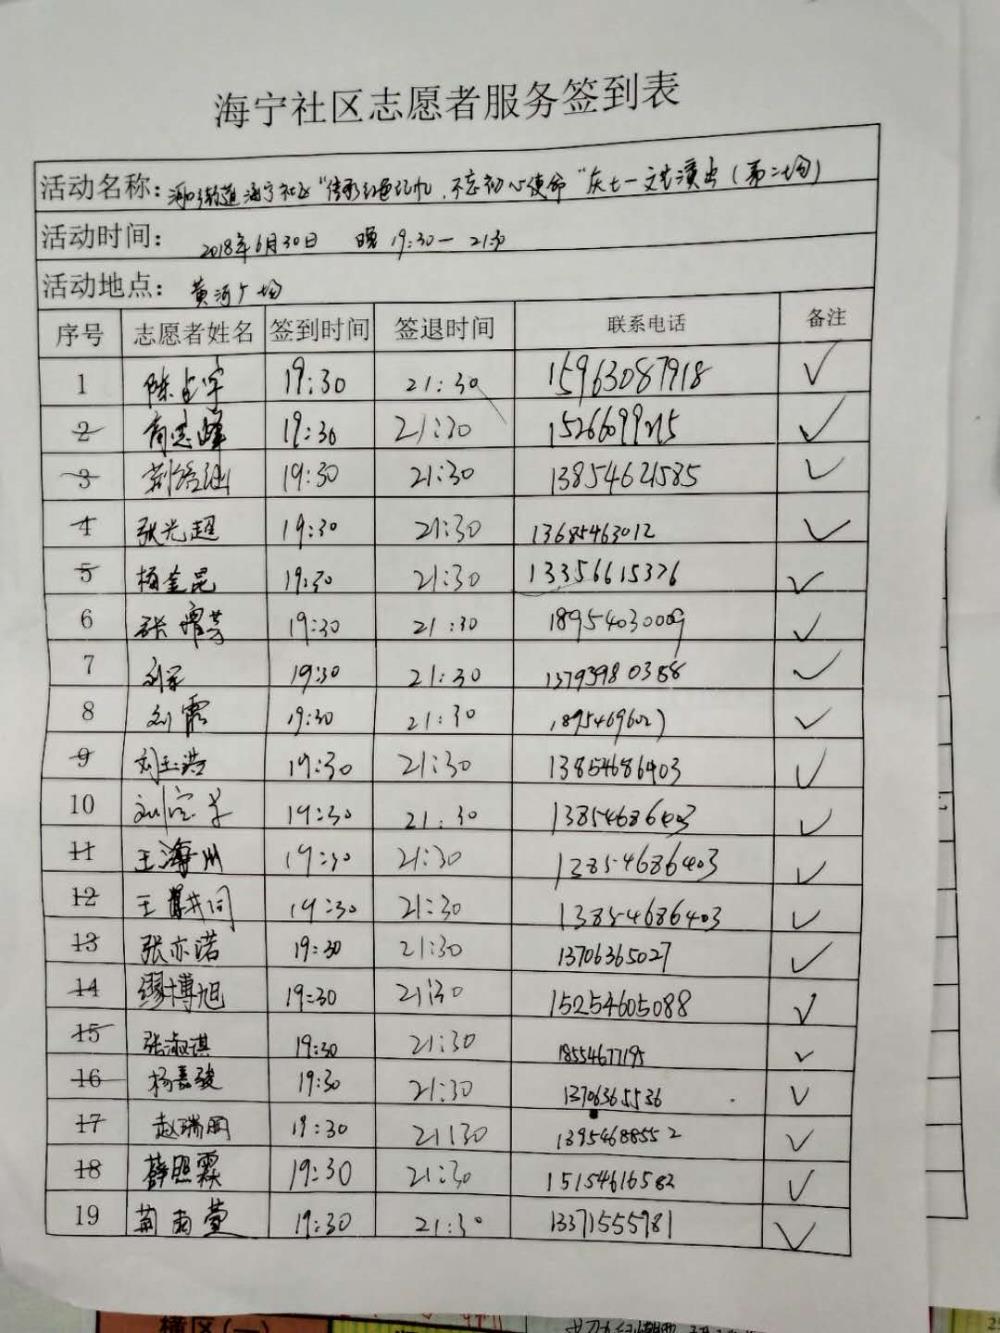 海宁社区志愿者服务签到表
活动名称: 海宁社区 "传承红色记忆,不忘初心使命" 庆七一文艺演出(第二场)
活动时间: 2018年6月30日 晚 19:30—21:30
活动地点: 黄河广场
序号 志愿者姓名 签到时间 签退时间 联系电话 备注
1 陈占宇 19:30 21:30 15963087918 ✓
2 19:30 21:30 ✓
3 19:30 21:30 13854621585 ✓
4 张光超 19:30 21:30 13685463012 ✓
5 杨金昆 19:30 21:30 13356615376 ✓
6 张 19:30 21:30 18954030009 ✓
7 刘军 19:30 21:30 13793980388 ✓
8 刘霞 19:30 21:30 ✓
9 刘玉浩 19:30 21:30 13854686403 ✓
10 刘 19:30 21:30 13854686403 ✓
11 王海州 19:30 21:30 13854686403 ✓
12 王 19:30 21:30 13854686403 ✓
13 张亦诺 19:30 21:30 13706365027 ✓
14 缪博旭 19:30 21:30 15254605088 ✓
15 张淑淇 19:30 21:30 18554677195 ✓
16 杨嘉骏 19:30 21:30 13706365536 ✓
17 赵瑞 19:30 21:30 13954688552 ✓
18 薛照霖 19:30 21:30 15154616582 ✓
19 雨萱 19:30 21:30 13371555781 ✓